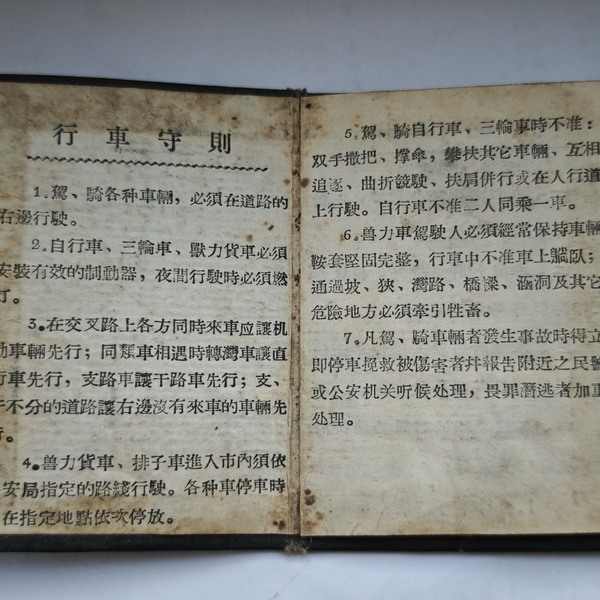 行車守則
1.駕、騎各种車輛，必須在道路的
右邊行駛。
2.自行車、三輪車、獸力貨車必須
安裝有效的制動器，夜間行駛時必須燃
灯。
3.在交叉路上各方同時來車应讓机
动車輛先行；同類車相遇時轉灣車讓直
行車先行，支路車讓干路車先行；支、
干不分的道路讓右邊沒有來車的車輛先
行。
4.兽力貨車、排子車進入市內須依
安局指定的路綫行駛。各种車停車時
在指定地點依次停放。
5.駕、騎自行車、三輪車時不准：
双手撒把、撑傘，攀扶其它車輛、互相
追逐、曲折競駛、扶肩併行或在人行道
上行駛。自行車不准二人同乘一車。
6.兽力車駕駛人必須經常保持車輛
鞍套堅固完整，行車中不准車上臥；
通過坡、狹、灣路、橋樑、涵洞及其它
危險地方必須牽引牲畜。
7.凡駕、騎車輛者發生事故時得立
即停車挽救被傷害者幷報告附近之民警
或公安机关听候处理，畏罪潛逃者加重
处理。